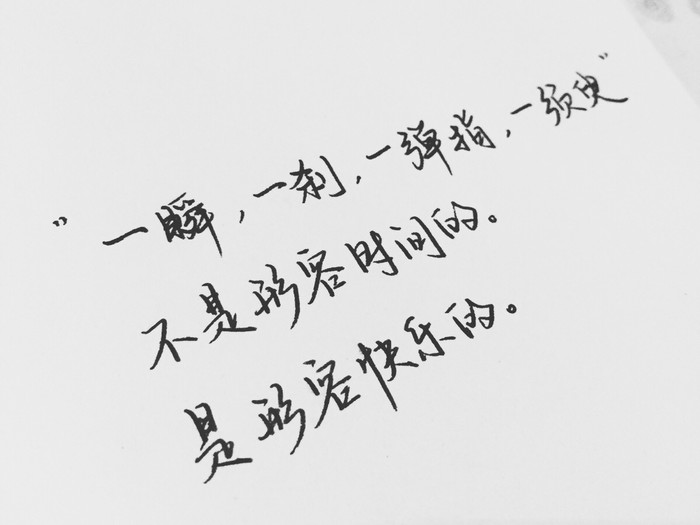 "一瞬,一刹,一弹指,一须臾"
不是形容时间的。
是形容快乐的。